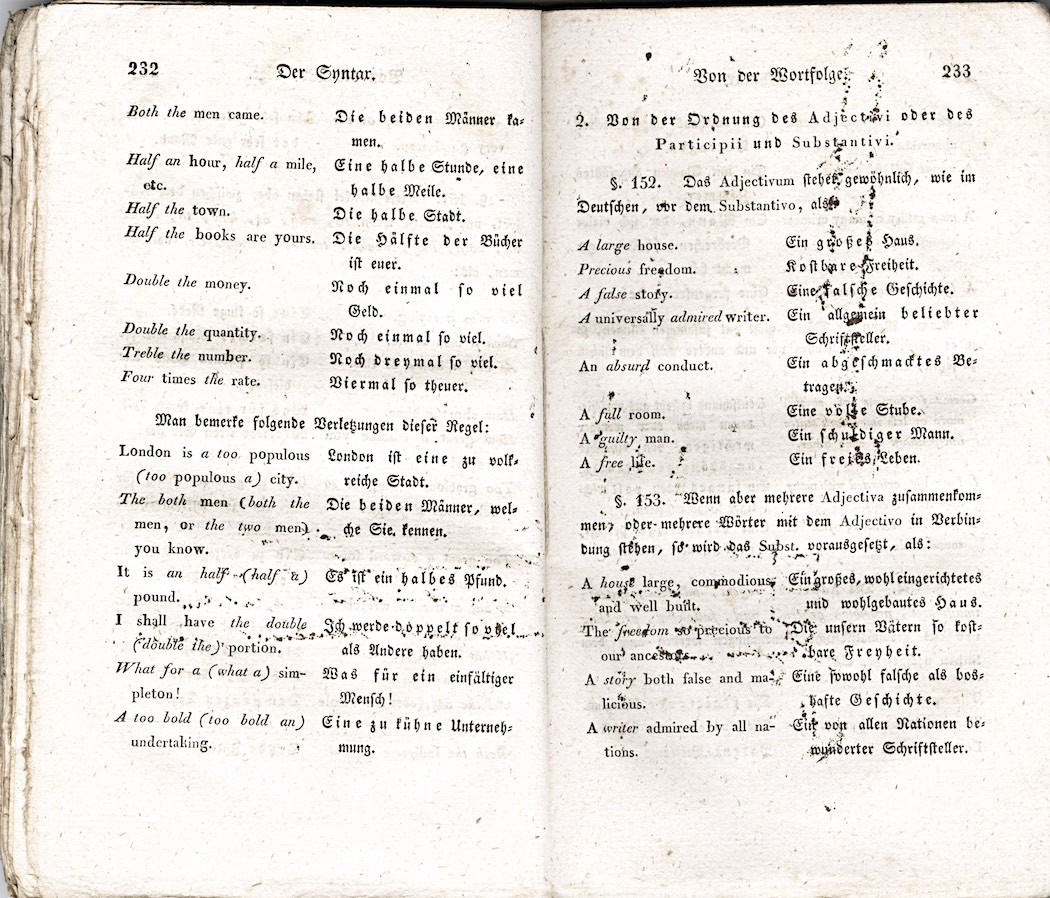 232
Der Syntax.
Both the men came.
Die beiden Männer ka-
men.
Half an hour, half a mile,
Eine halbe Stunde, eine
etc.
halbe Meile.
Half the town.
Die halbe Stadt.
Half the books are yours.
Die Hälfte der Bücher
ist euer.
Double the money.
Noch einmal so viel
Geld.
Double the quantity.
Noch einmal so viel.
Treble the number.
Noch dreymal so viel.
Four times the rate.
Viermal so theuer.
Man bemerke folgende Verletzungen dieser Regel:
London is a too populous
London ist eine zu volk-
(too populous a) city.
reiche Stadt.
The both men (both the
Die beiden Männer, wel-
men, or the two men)
che Sie kennen.
you know.
It is an half (half a)
Es ist ein halbes Pfund.
pound.
I shall have the double
Ich werde doppelt so viel
(double the) portion.
als Andere haben.
What for a (what a) sim-
Was für ein einfältiger
pleton!
Mensch!
A too bold (too bold an)
Eine zu kühne Unterneh-
undertaking.
mung.
Von der Wortfolge.
233
2. Von der Ordnung des Adjectivi oder des
Participii und Substantivi.
§. 152. Das Adjectivum stehet gewöhnlich, wie im
Deutschen, vor dem Substantivo, als:
A large house.
Ein großes Haus.
Precious freedom.
Kostbare Freiheit.
A false story.
Eine falsche Geschichte.
A universally admired writer.
Ein allgemein beliebter
Schriftsteller.
An absurd conduct.
Ein abgeschmacktes Be-
tragen.
A full room.
Eine volle Stube.
A guilty man.
Ein schuldiger Mann.
A free life.
Ein freies Leben.
§. 153. Wenn aber mehrere Adjectiva zusammenkom-
men, oder mehrere Wörter mit dem Adjectivo in Verbin-
dung stehen, so wird das Subst. vorausgesetzt, als:
A house large, commodious,
Ein großes, wohl eingerichtetes
and well built.
und wohlgebautes Haus.
The freedom so precious to
Die unsern Vätern so kost-
our ancestors.
bare Freyheit.
A story both false and ma-
Eine sowohl falsche als bos-
licious.
hafte Geschichte.
A writer admired by all na-
Ein von allen Nationen be-
tions.
wunderter Schriftsteller.